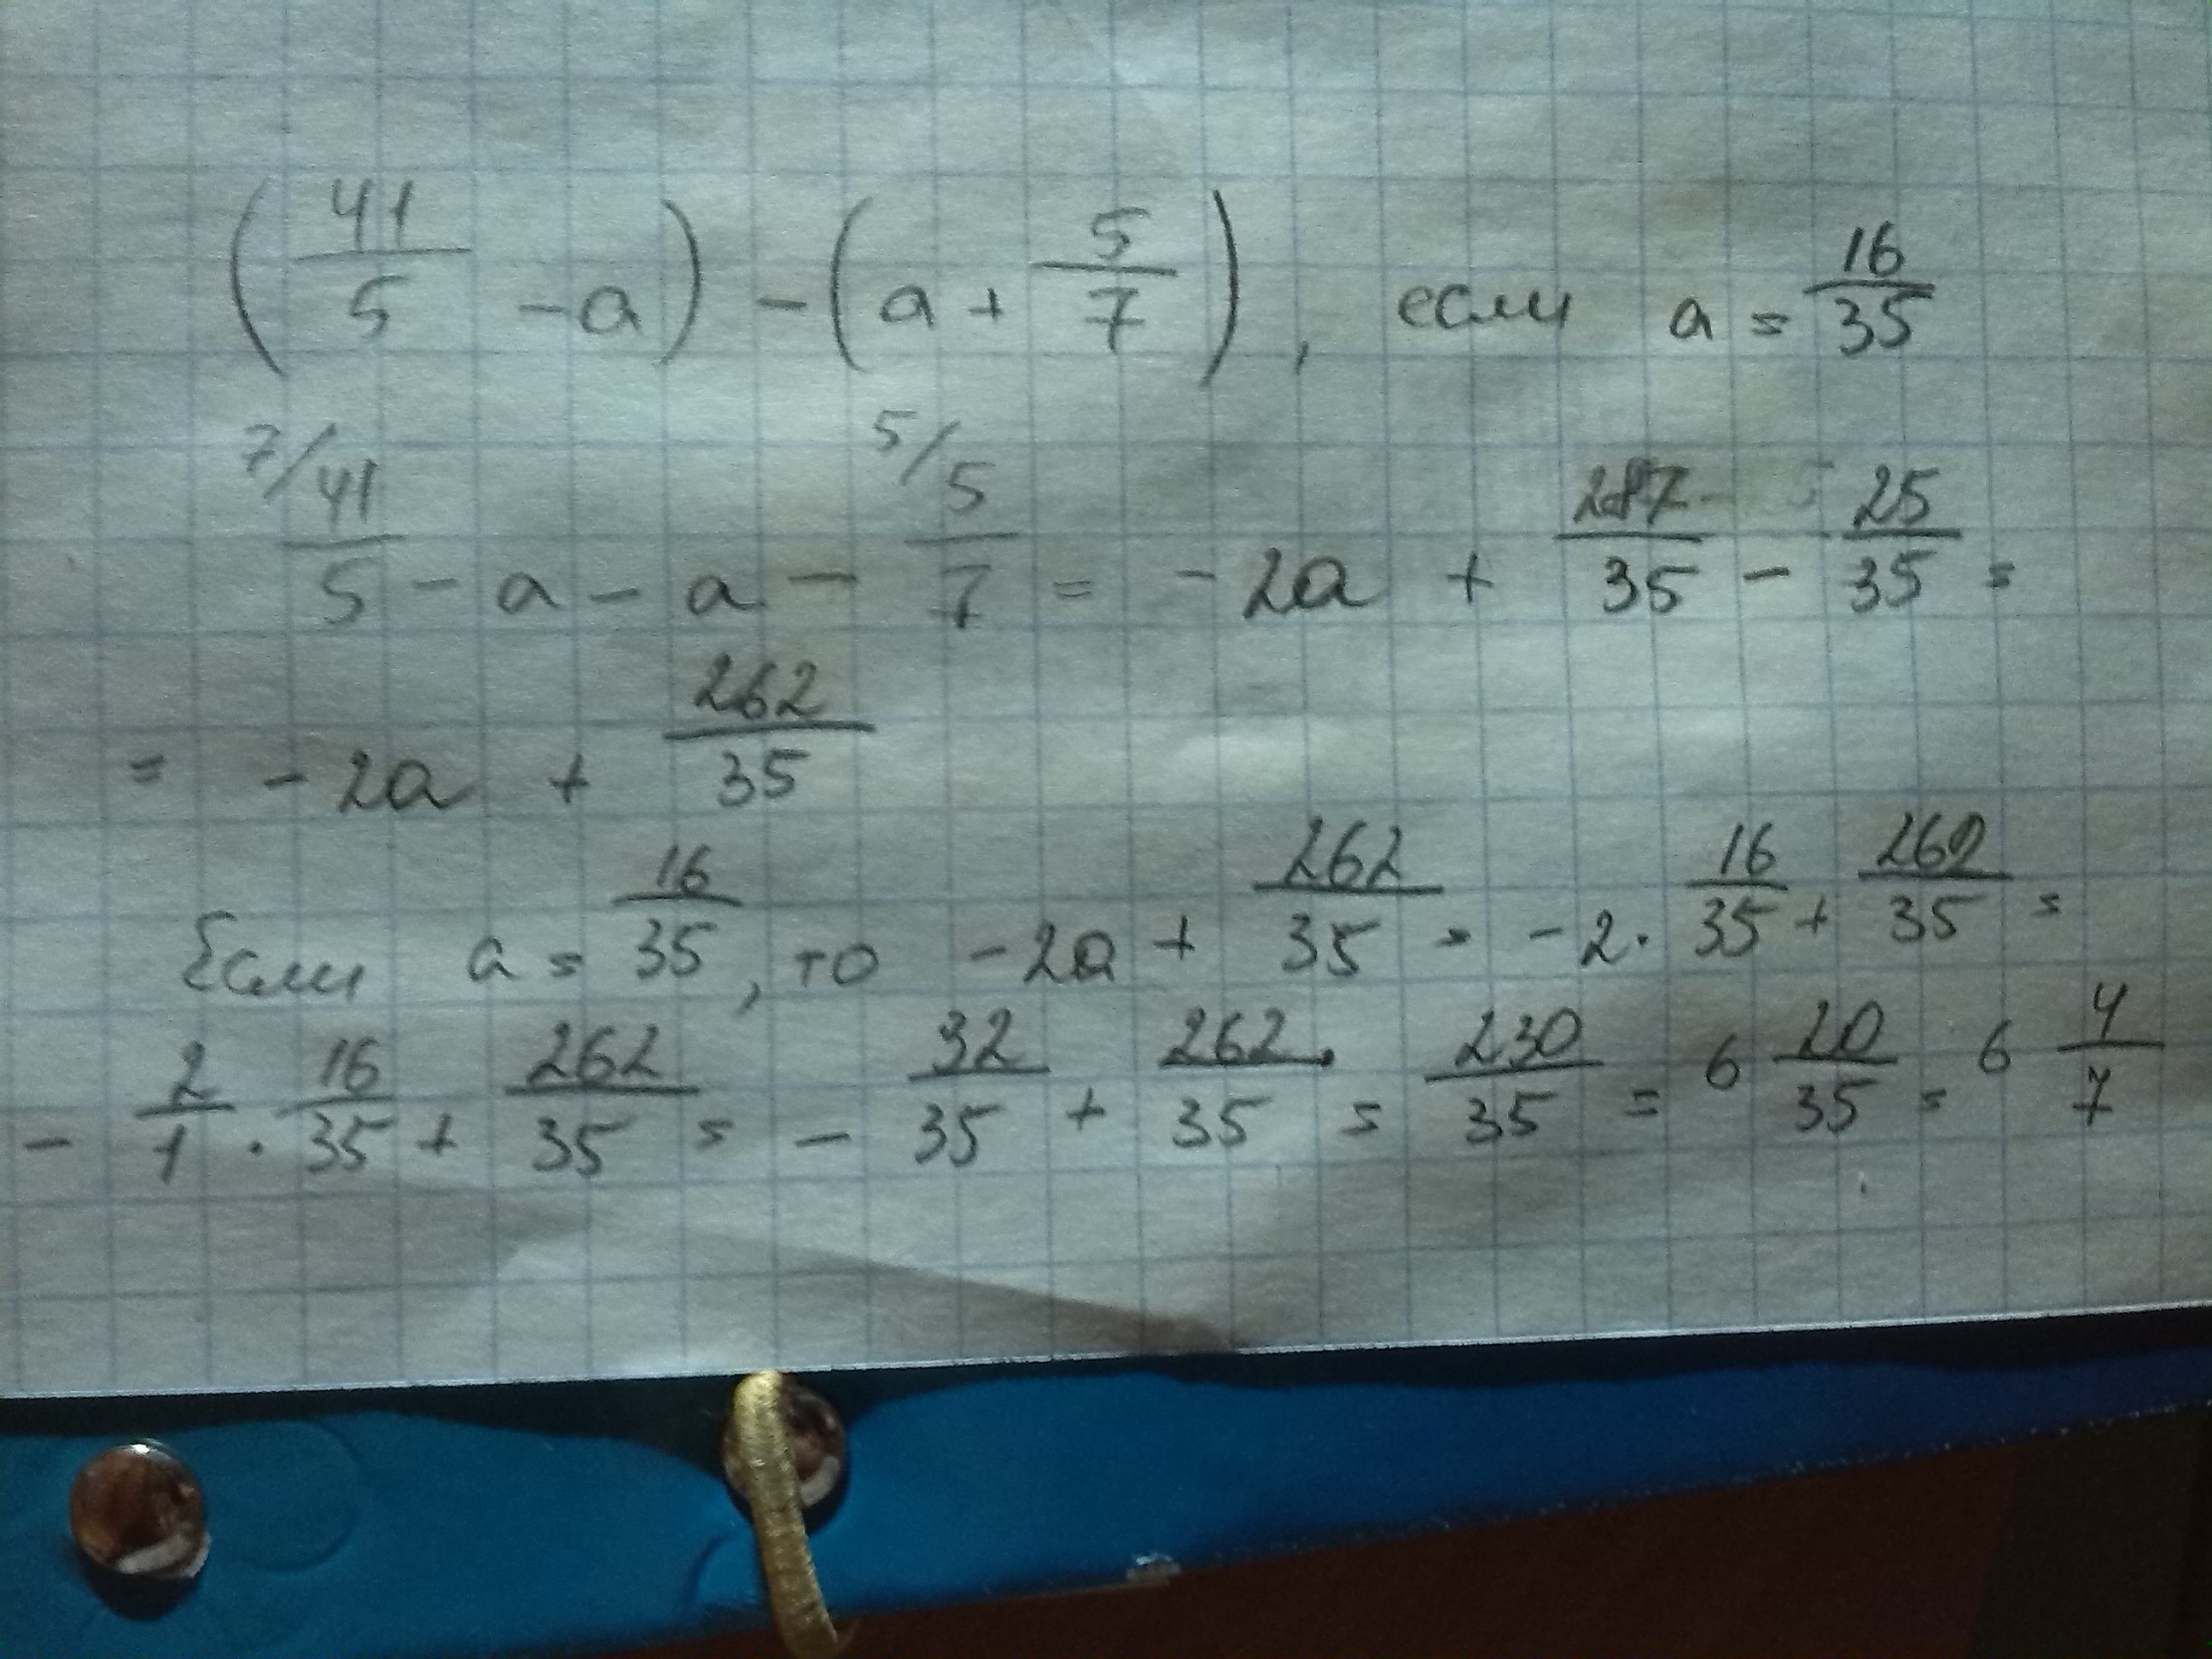 (41/5 - a) - (a + 5/7), если a = 16/35
7/ 41/5 - a - a - 5/ 5/7 = - 2a + 287/35 - 25/35 =
= - 2a + 262/35
Если a = 16/35, то - 2a + 262/35 = - 2 · 16/35 + 262/35 =
- 2/1 · 16/35 + 262/35 = - 32/35 + 262/35 = 230/35 = 6 20/35 = 6 4/7